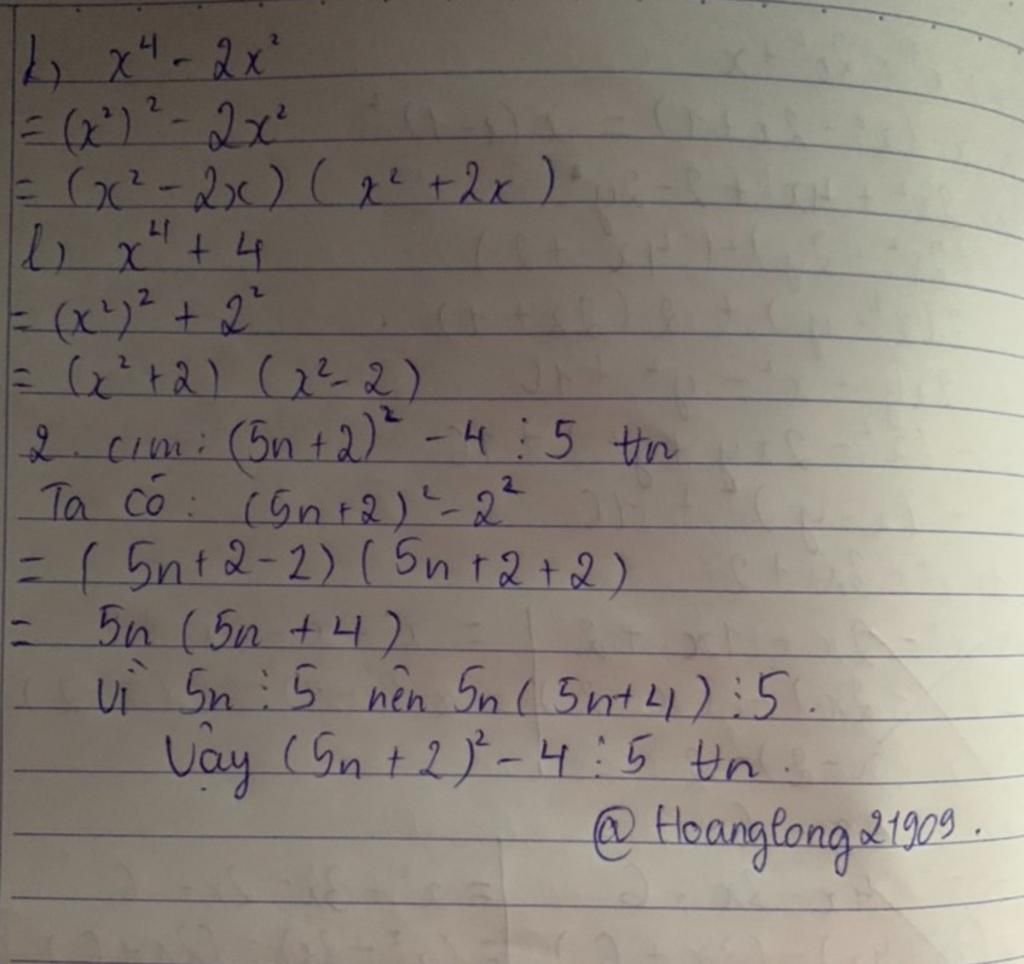 k) x⁴ - 2x²
= (x²)² - 2x²
= (x² - 2x) (x² + 2x)
l) x⁴ + 4
= (x²)² + 2²
= (x² + 2) (x² - 2)
2. CM: (5n + 2)² - 4 ⋮ 5 ∀n
Ta có: (5n + 2)² - 2²
= (5n + 2 - 2) (5n + 2 + 2)
= 5n (5n + 4)
Vì 5n ⋮ 5 nên 5n (5n + 4) ⋮ 5.
Vậy (5n + 2)² - 4 ⋮ 5 ∀n.
@ Hoanglong21909.